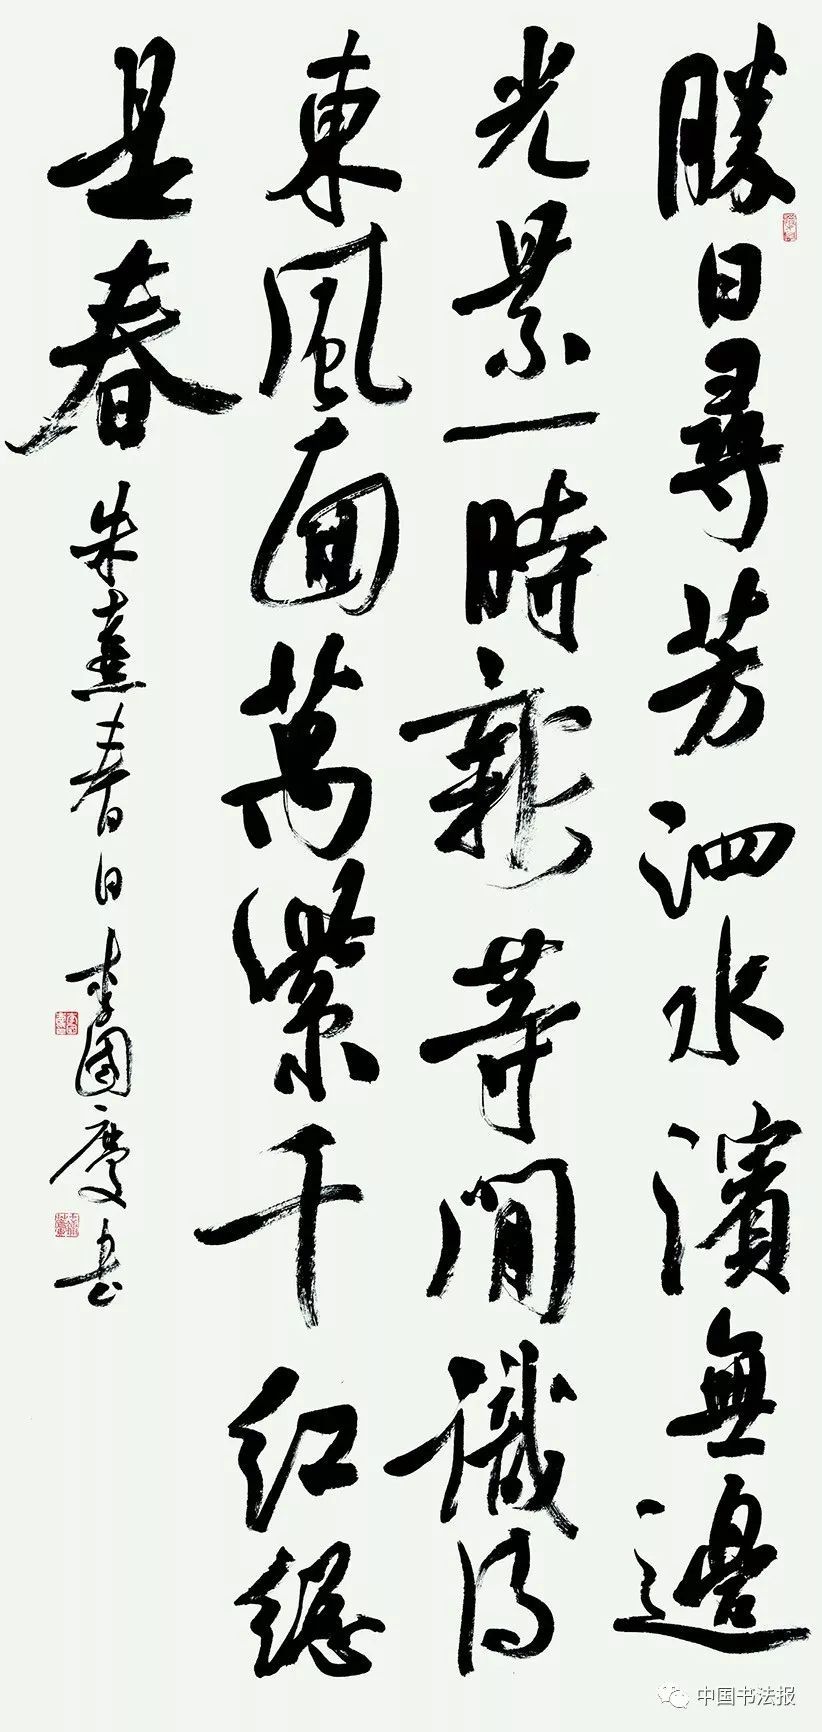 勝日尋芳泗水濱無邊
光景一時新等閒識得
東風面萬紫千紅總
是春
朱熹春日李國慶书
中国书法报